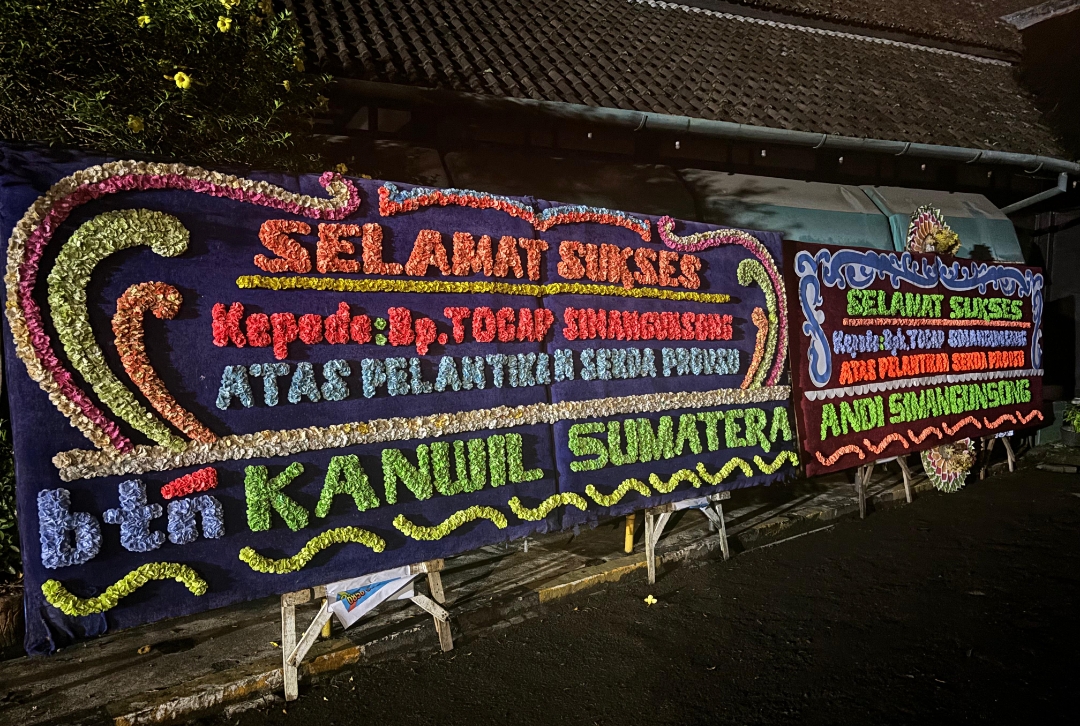 SELAMAT SUKSES
Kepada: Bp. TOGAP SIMANGUNSONG
ATAS PELANTIKAN SEKDA PROVSU
btn KANWIL SUMATERA
SELAMAT SUKSES
Kepada: Bpk. TOGAP SIMANGUNSONG
ATAS PELANTIKAN SEKDA PROVSU
ANDI SIMANGUNSONG